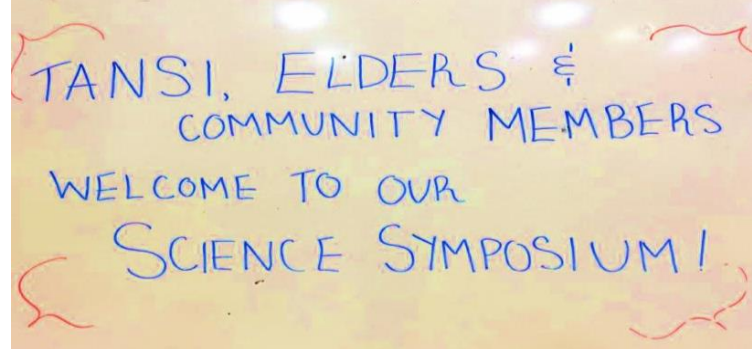 TANSI, ELDERS &
COMMUNITY MEMBERS
WELCOME TO OUR
SCIENCE SYMPOSIUM!